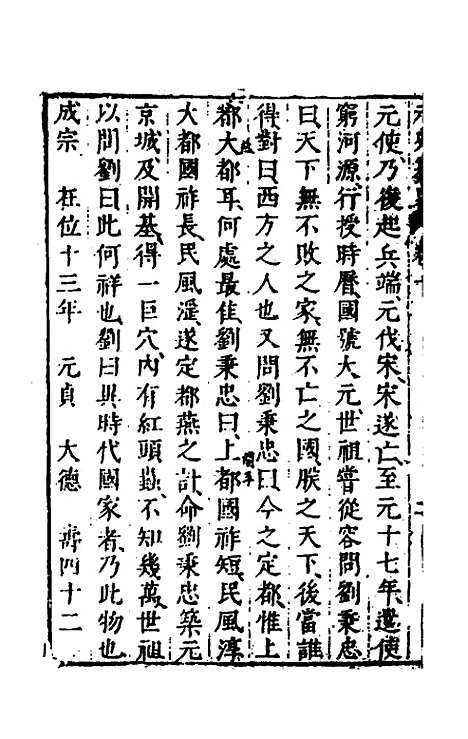 元使乃復起兵端元伐宋宋遂亡至元十七年遣使
窮河源行授時曆國號大元世祖嘗從容問劉秉忠
曰天下無不敗之家無不亡之國朕之天下後當誰
得對曰西方之人也又問劉秉忠曰今之定都惟上
都大都耳何處最佳劉秉忠曰上都國祚短民風淳
大都國祚長民風滛遂定都燕之計命劉秉忠築元
京城及開基得一巨穴內有紅頭蟲不知幾萬世祖
以問劉曰此何祥也劉曰異時代國家者乃此物也
成宗 在位十三年 元貞 大德 壽四十二